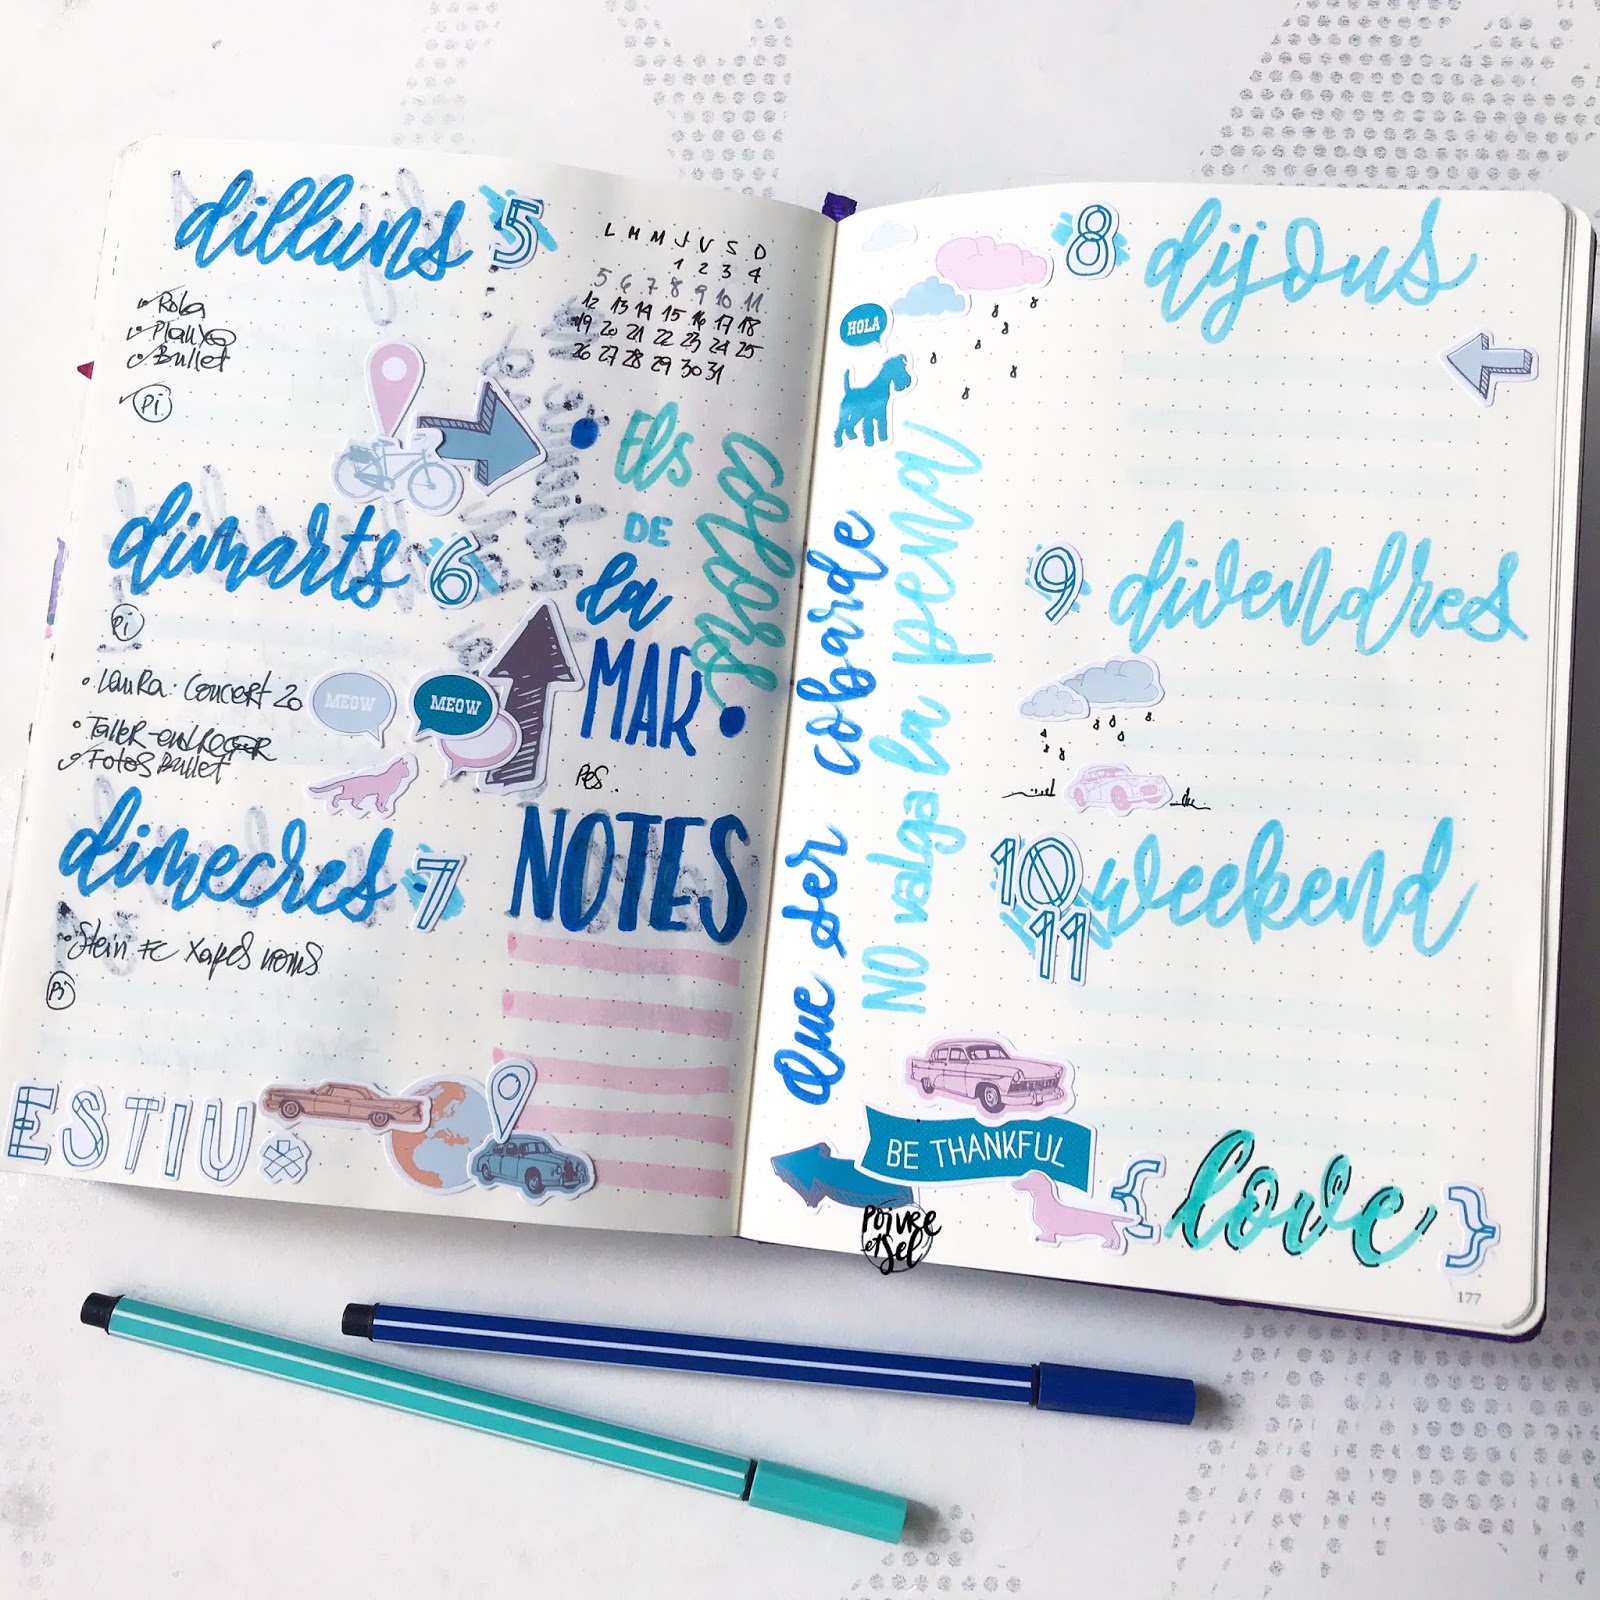 dilluns 5
Roba
Planxa
Bullet
Pi
dimarts 6
Pi
Laura: Concert 20
Taller - entregar
Fotos Bullet
MEOW
MEOW
dimecres 7
Stein FC
Pi
ESTIU*
L M M J V S D
1 2 3 4
5 6 7 8 9 10 11
12 13 14 15 16 17 18
19 20 21 22 23 24 25
26 27 28 29 30 31
Els
colors
DE
la
MAR
Pes.
NOTES
8 dijous
HOLA
Que ser cobarde
NO valga la pena
9 divendres
10 11 weekend
BE THANKFUL
{ love }
POIVRE
et Sel
177